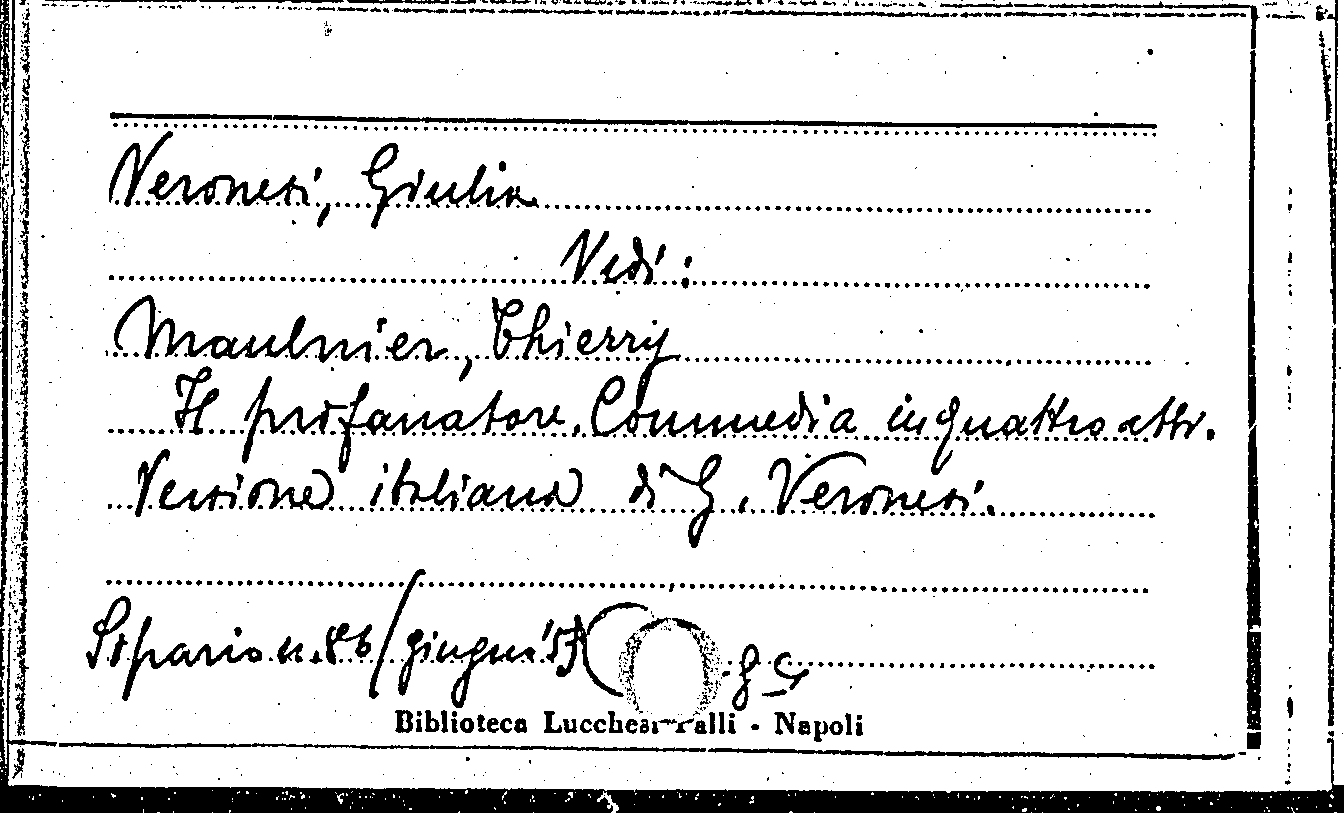 Veronesi, Giulia
Vedi:
Maulnier, Thierry
Il profanatore. Commedia in quattro atti.
Versione italiana di G. Veronesi.
Sipario n. 86/giugno '53
Biblioteca Lucchesi-Palli - Napoli